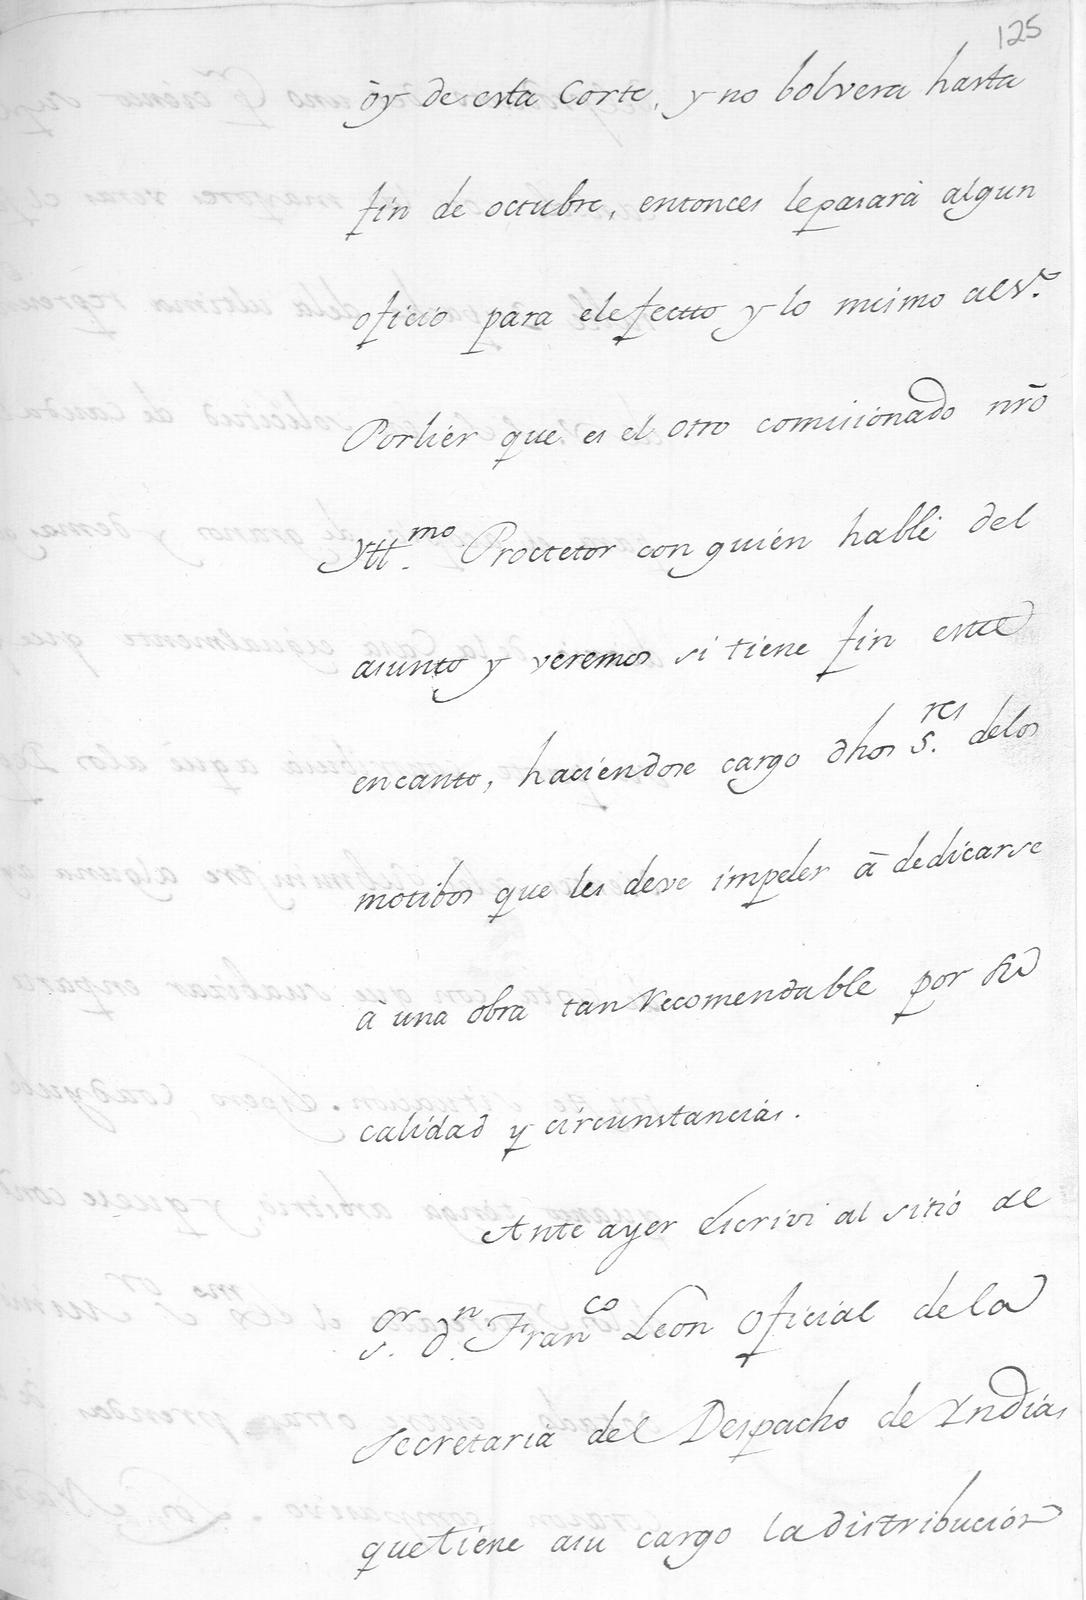 125
òy de esta Corte, y no bolvera hasta
fin de octubre, entonces le pasarà algun
oficio para el efectto y lo mismo al S.r
Porlier que es el otro comisionado nr̄o
Ytt.mo Proctetor con quién hablé del
asunto y veremos si tiene fin este
encanto, haciéndose cargo dhos S.res delos
motibos que les deve impeler à dedicarse
à una obra tan recomendable por su
calidad y circunstancias.
Ante ayer Escrivi al sitio al
S.or d.n Fran.co Leon Oficial de la
secretaria del Despacho de Yndias
que tiene asu cargo la distribución